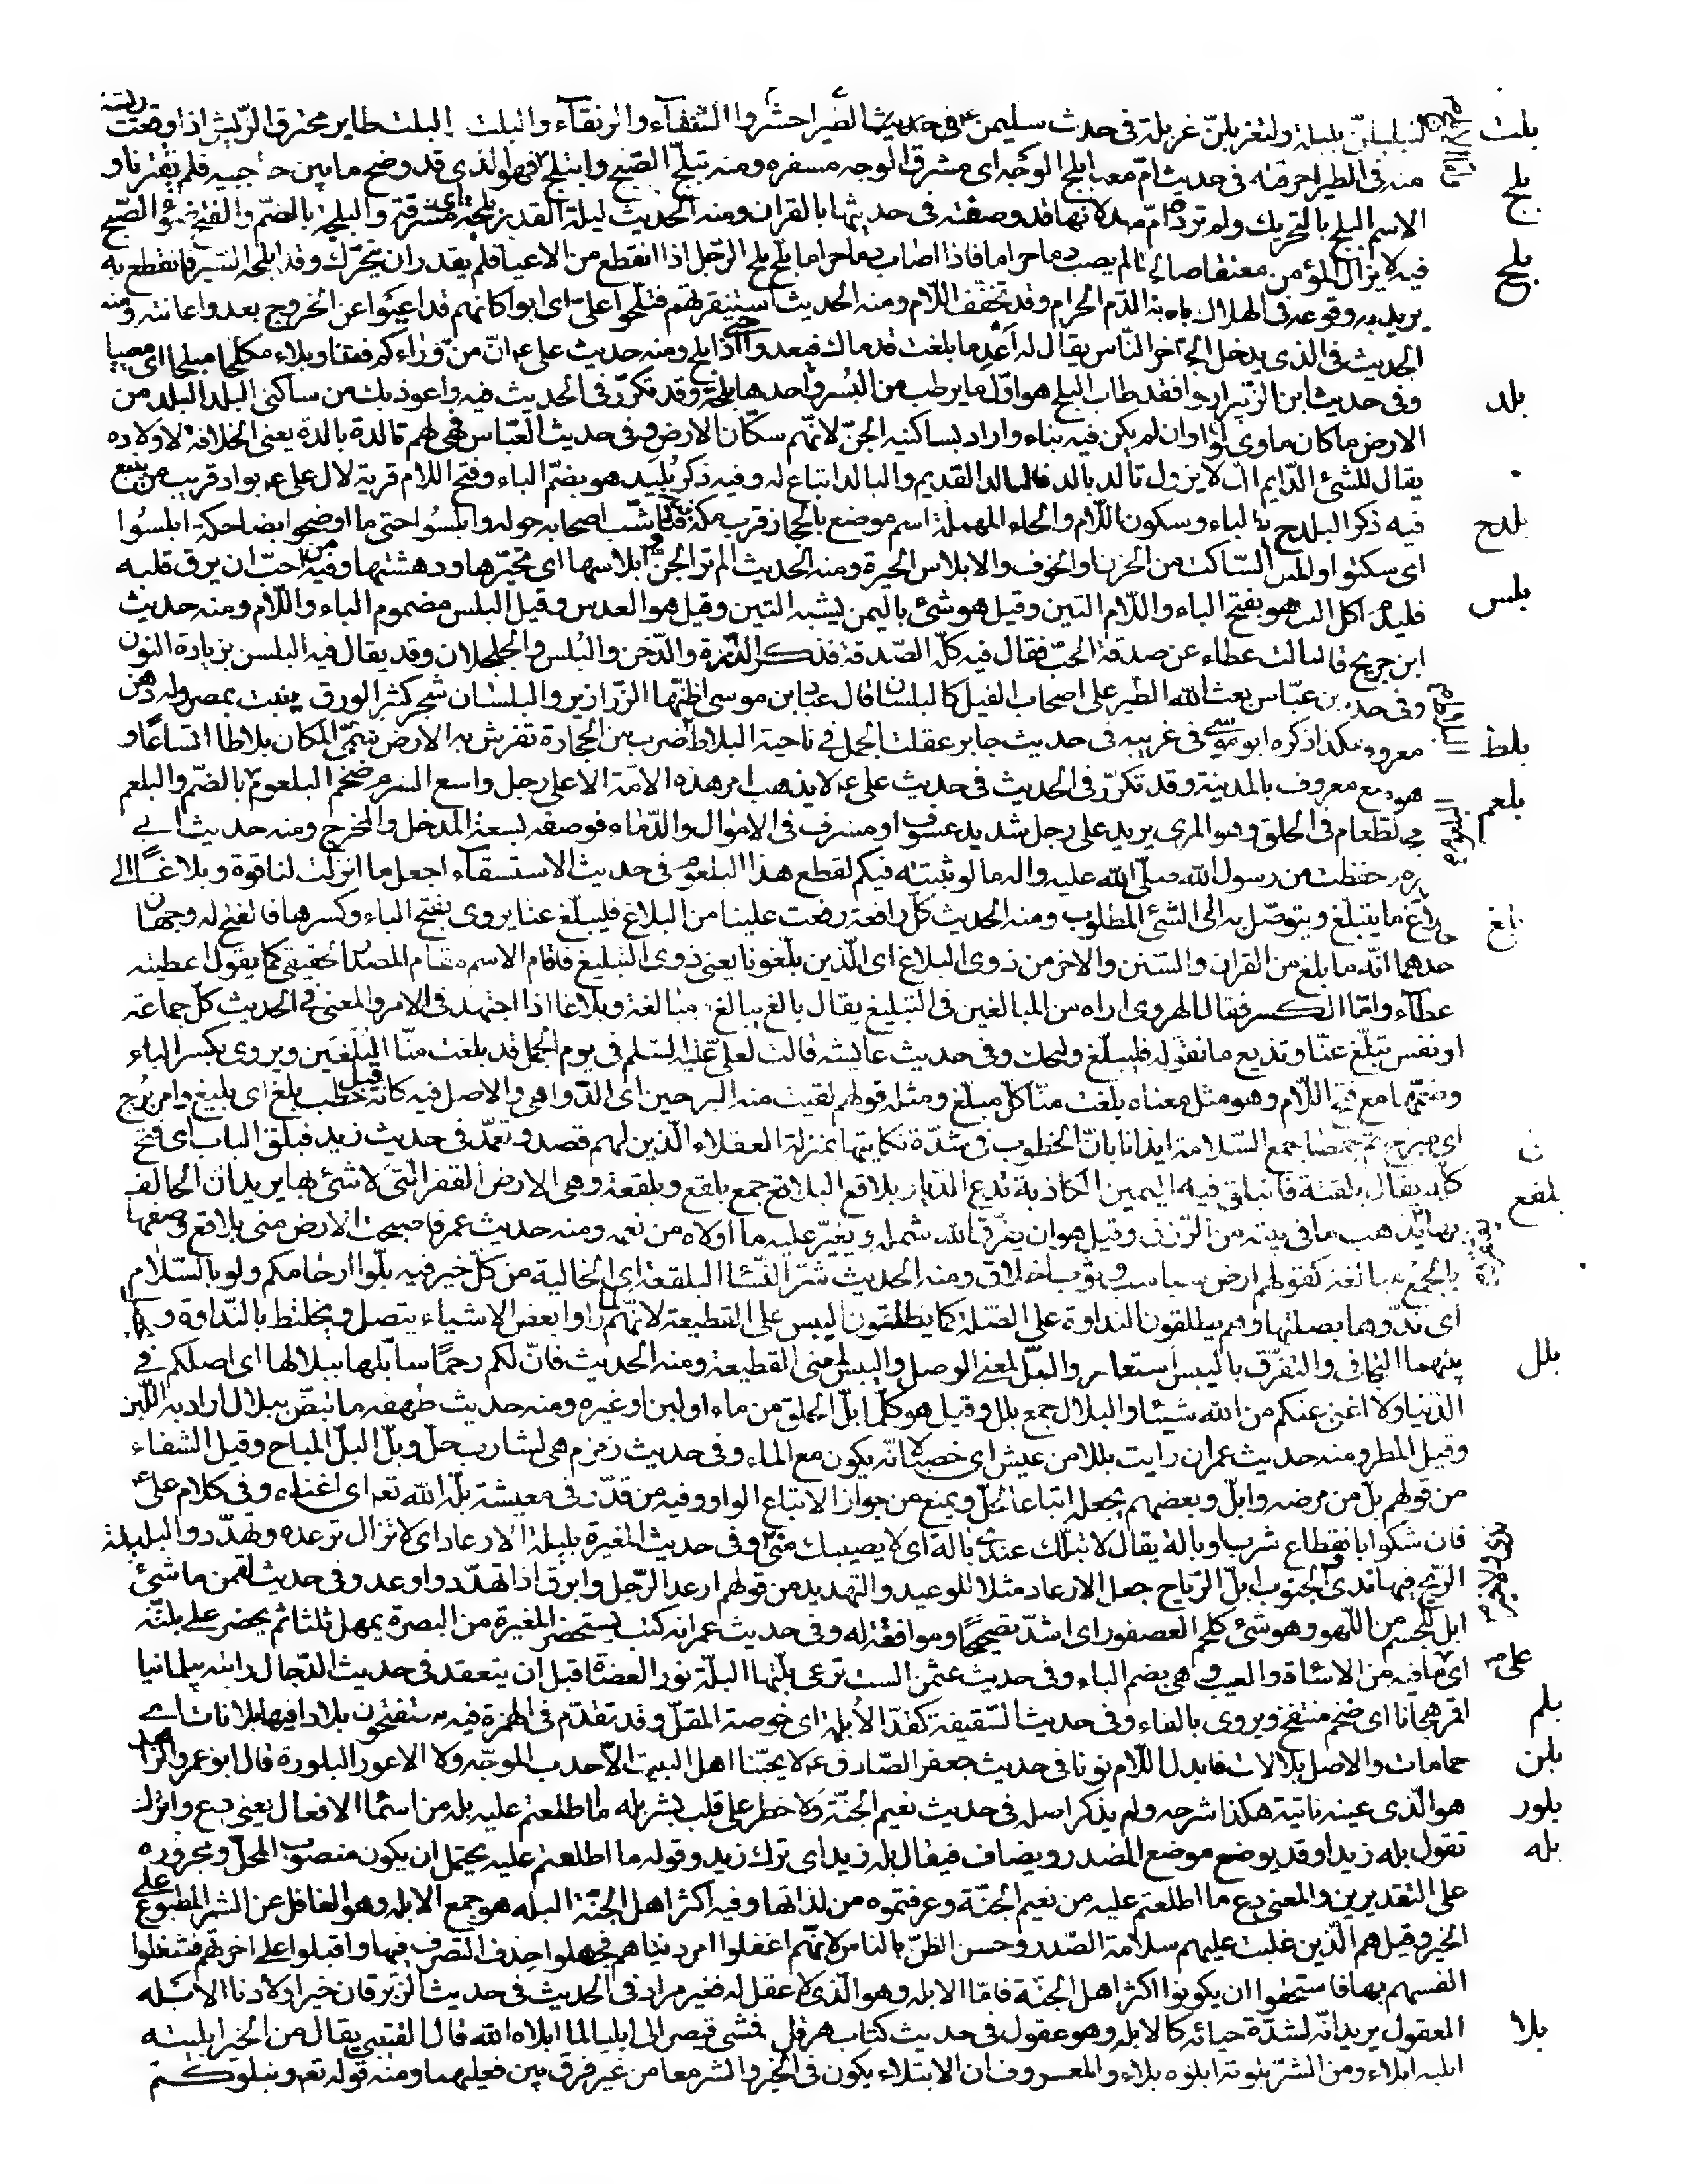 بلت لتبلبلنّ بلبلة ولتغربلنّ غربلة فى حدث سليمن ع فى حديث الطير احشروا الشنقآء والرنقآء والبلت البلت طاير محترق الرّيش اذا وقعت ريشة
بلج منه فى الطير احرقته فى حديث امّ معبد ابلج الوجه اى مشرق الوجه مسفره ومنه تبلّج الصّبح وابتلج فهو الذى قد وضح ما بين حاجبيه فلم يقترنا و
الاسم البلج بالتحريك ولم ترده امّ معبد لانها قد وصفته فى حديثها بالقران ومنه الحديث ليلة القدر بلجة اى مشرقة والبلجة بالضمّ والفتح ضوء الصّبح
بلح فيه لا يزال المؤمن معنقا صالحا ما لم يصب دما حراما فاذا اصاب دما حراما بلّح بلح الرّجل اذا انقطع من الاعيا فلم يقدر ان يتحرّك وقد ابلحه السّير فانقطع به
يريد به وقوعه فى الهلاك باصابة الدّم الحرام وقد تخفّف اللّام ومنه الحديث استنفرتهم فبلّحوا علىّ اى ابوا كانهم قد اعيوا عن الخروج بعد واعانته ومنه
الحديث فى الذى يدخل الجنّة اخر النّاس يقال له اعد ما بلغت قدماك فيعدوا حتى اذا بلّح ومنه حديث على ع انّ من وراءكم فتنا وبلاء مكلحا مبلحا اى معييا
بلد وفى حديث ابن الزبير ارجعوا فقد طاب البلح هو اوّل ما يرطب من البُسر واحدها بلحة وقد تكرّر فى الحديث فيه واعوذ بك من ساكنى البلد البلد من
الارض ما كان ماوى للحيوان وان لم يكن فيه بناء واراد بساكنيه الجنّ لانّهم سكّان الارض وفى حديث العبّاس فهى لهم تالدة بالدة يعنى الخلافة لاولاده
يقال للشئ الدّايم الذى لا يزول تالد بالد فالتالد القديم والبالد اتباع له وفيه ذكر بُليد هو بضمّ الباء وفتح اللام قرية لال على ع بواد قريب من ينبع
بلدح فيه ذكر البلدح بفتح الباء وسكون اللّام والحاء المهملة اسم موضع بالحجاز قرب مكّة فتاشّب اصحابه حوله وابلسُوا حتى ما اوضحوا بضاحكة ابلسُوا
بلس اى سكتوا والمبلس السّاكت من الحزن او الخوف والابلاس الحيرة ومنه الحديث الم تر الجنّ وابلاسها اى تحيّرها ودهشتها وفيه من احبّ ان يرق قلبه
فليدم اكل البلس هو بفتح الباء واللّام التين وقيل هو شئ باليمن يشبه التين وقيل هو العدس وقيل البلس مضموم الباء واللّام ومنه حديث
ابن جريح قال سالت عطاء عن صدقة الحبّ فقال فيه كلّه الصّدقة فذكر الذّرة والدّخن والبُلس والجلجلان وقد يقال فيه البلسن بزيادة النون
وفى حديث ابن عبّاس بعث الله الطير على اصحاب الفيل كالبلسان قال عباد بن موسى اظنّها الزّرازير والبلسان شجر كثير الورق ينبت بمصر وله دهن
بلط معروف هكذا ذكره ابو موسى فى غريبه فى حديث جابر عقلت الجمل فى ناحية البلاط البلاط ضرب من الحجارة تفرش به الارض ثم سمّى المكان بلاطا اتّساعا و
بلعم هو موضع معروف بالمدينة وقد تكرّر فى الحديث فى حديث على ع لا يذهب امر هذه الامّة الا على رجل واسع السرم ضخم البلعوم البلعوم بالضّم والبلعم
مجرى الطعام فى الحلق وهو المرى يريد على رجل شديد عسوف او مسرف فى الاموال والدّماء فوصفه بسعة المدخل والمخرج ومنه حديث ابى
هريرة حفظت من رسول الله صلّى الله عليه واله ما لو بثثته فيكم لقطع هذا البلعوم فى حديث الاستسقآء اجعل ما انزلت لنا قوة وبلاغًا الى
بلغ حين البلاغ ما يتبلّغ ويتوصّل به الى الشئ المطلوب ومنه الحديث كلّ رافعة رفعت علينا من البلاغ فليبلّغ عنا يروى بفتح الباء وكسرها فالفتح له وجهان
احدهما انّه ما بلغ من القران والسّنن والاخر من ذوى البلاغ اى الّذين بلّغونا يعنى ذوى التبليغ فاقام الاسم مقام المصدر الحقيقى كما يقول اعطيته
عطآء وامّا الكسر فقال الهروى اراه من المبالغين فى التبليغ يقال بالغ يبالغ مبالغة وبلاغا اذا اجتهد فى الامر والمعنى فى الحديث كلّ جماعة
او نفس تبلّغ عنّا وتذيع ما نقوله فليبلّغ وليحك وفى حديث عايشه قالت لعلى عليه السّلم فى يوم الجمل قد بلغت منّا البُلَغين ويروى بكسر الباء
وضمّها مع فتح اللّام وهو مثل معناه بلغت منّا كلّ مبلغ ومثله قولهم لقيت منه البرحين اى الدّواهى والاصل فيه كانه قيل خطب بلغ اى بليغ وامر برح
اى مبرح ثم جمعا جمع السّلامة ايذانا بانّ الخطوب فى شدّة نكايتها بمنزلة العقلاء الّذين لهم قصد وتعمّد فى حديث زيد فبلق الباب اى فتح
بلقع كلّه يقال بلقته فانبلق فيه اليمين الكاذبة تدع الدّيار بلاقع البلاقع جمع بلقع وبلقعة وهى الارض القفر الّتى لا شئ بها يريد ان الحالف
بها يذهب ما فى بيته من الرّزق وقيل هو ان يفرّق الله شمله ويغيّر عليه ما اولاه من نعمه ومنه حديث عمر فاصبحت الارض منى بلاقع وصفها
بالجمع مبالغة كقولهم ارض سباسب وثوب اخلاق ومنه الحديث شرّ النّساء البلقعة اى الخالية من كلّ خير فيه بلّوا ارحامكم ولو بالسّلام
اى ندّوها بصلتها وهم يطلقون النداوة على الصّلة كما يطلقون اليبس على القطيعة لانّهم لما راوا بعض الاشياء يتصل ويختلط بالنّداوة و
بلل بينهما التجافى والتفرّق باليبس استعاروا البلّ لمعنى الوصل واليبس لمعنى القطيعة ومنه الحديث فانّ لكم رحمًا سابلّها ببلالها اى اصلكم فى
الدّنيا ولا اغنى عنكم من الله شيئا والبلال جمع بلل وقيل هو كلّ ما بلّ الحلق من ماء او لبن او غيره ومنه حديث طهفه ما تبضّ ببلال اراد به اللّبن
وقيل المطر ومنه حديث عمر ان رايت بللا من عيش اى خصبا لانّه يكون مع الماء وفى حديث زمزم هى لشارب حلّ وبلّ البلّ المباح وقيل الشفاء
من قولهم بلّ من مرضه وابلّ وبعضهم يجعل اتباعا لحلّ ويمنع من جواز الاتباع الواو وفيه من قدّر فى معيشته بلّه الله تعه اى اغناه وفى كلام على ع
فان شكوا بانقطاع شرب او بالة يقال لا تبلّك عندى بالة اى لا يصيبك منّى وفى حديث المغيرة بليلة الارعاد اى لا تزال ترعد وتهدّد والبليلة
الرّيح فيها ندى والجنوب ابلّ الرّياح جعل الارعاد مثلا للوعيد والتهديد من قولهم ارعد الرّجل وابرق اذا تهدّد واوعد وفى حديث لقمن ما شئ
ابل للجسم من اللّهو وهو شئ كلحم العصفور اى اشدّ تصحيحًا وموافقة له وفى حديث عمر انه كتب يستحضر المغيرة من البصرة يمهل ثلثا ثم يحضر على بلّته
اى على ما فيه من الاساة والعيب وهى بضم الباء وفى حديث عثمن الست ترعى بلّتها البلّة نور العضاة قبل ان ينعقد فى حديث الدّجال رايته بيلمانيا
بلم اقمر هجانا اى ضخم منتفخ ويروى بالفاء وفى حديث السّقيفة كقدّ الاُبلمة اى خوصة المقل وقد تقدّم فى الهمزة فيه ستفتحون بلادا فيها بلانات اى
بلن حمامات والاصل بلالات فابدل اللّام نونا فى حديث جعفر الصّادق ع لا يحبّنا اهل البيت الاحدب الموجّه ولا الاعور البلورة قال ابو عمرو الزاهد
بلور هو الّذى عينه ناتية هكذا شرحه ولم يذكر اصله فى حديث نعيم الجنّة ولا خطر على قلب بشر بله ما اطلعتم عليه بله من اسمآ الافعال يعنى دع واترك
بله تقول بله زيدا وقد يوضع موضع المصدر ويضاف فيقال بله زيد اى ترك زيد وقوله ما اطلعتم عليه يحتمل ان يكون منصوب المحلّ ومجروره
على التقديرين والمعنى دع ما اطلعتم عليه من نعيم الجنّة وعرفتموه من لذاتها وفيه اكثر اهل الجنّة البله هو جمع الابله وهو الغافل عن الشر المطبوع على
الخير وقيل هم الّذين غلبت عليهم سلامة الصّدر وحسن الظنّ بالناس لانّهم اغفلوا امر دنياهم فجهلوا حذف التصرف فيها واقبلوا على اخرتهم فشغلوا
انفسهم بها فاستحقوا ان يكونوا اكثر اهل الجنّة فامّا الابله وهو الّذى لا عقل له فغير مراد فى الحديث فى حديث الزبرقان خير اولادنا الابله
بلا المعقول يريد انّه لشدّة حيائه كالابله وهو عقول فى حديث كتاب هرقل فمشى قيصر الى ايليا لما ابلاه الله قال القتيبى يقال من الخير ابليته
ابليه ابلاء ومن الشرّ بلوته ابلوه بلاء والمعروف ان الابتلاء يكون فى الخير والشر معا من غير فرق بين فعليهما ومنه قوله تعه ونبلوكم